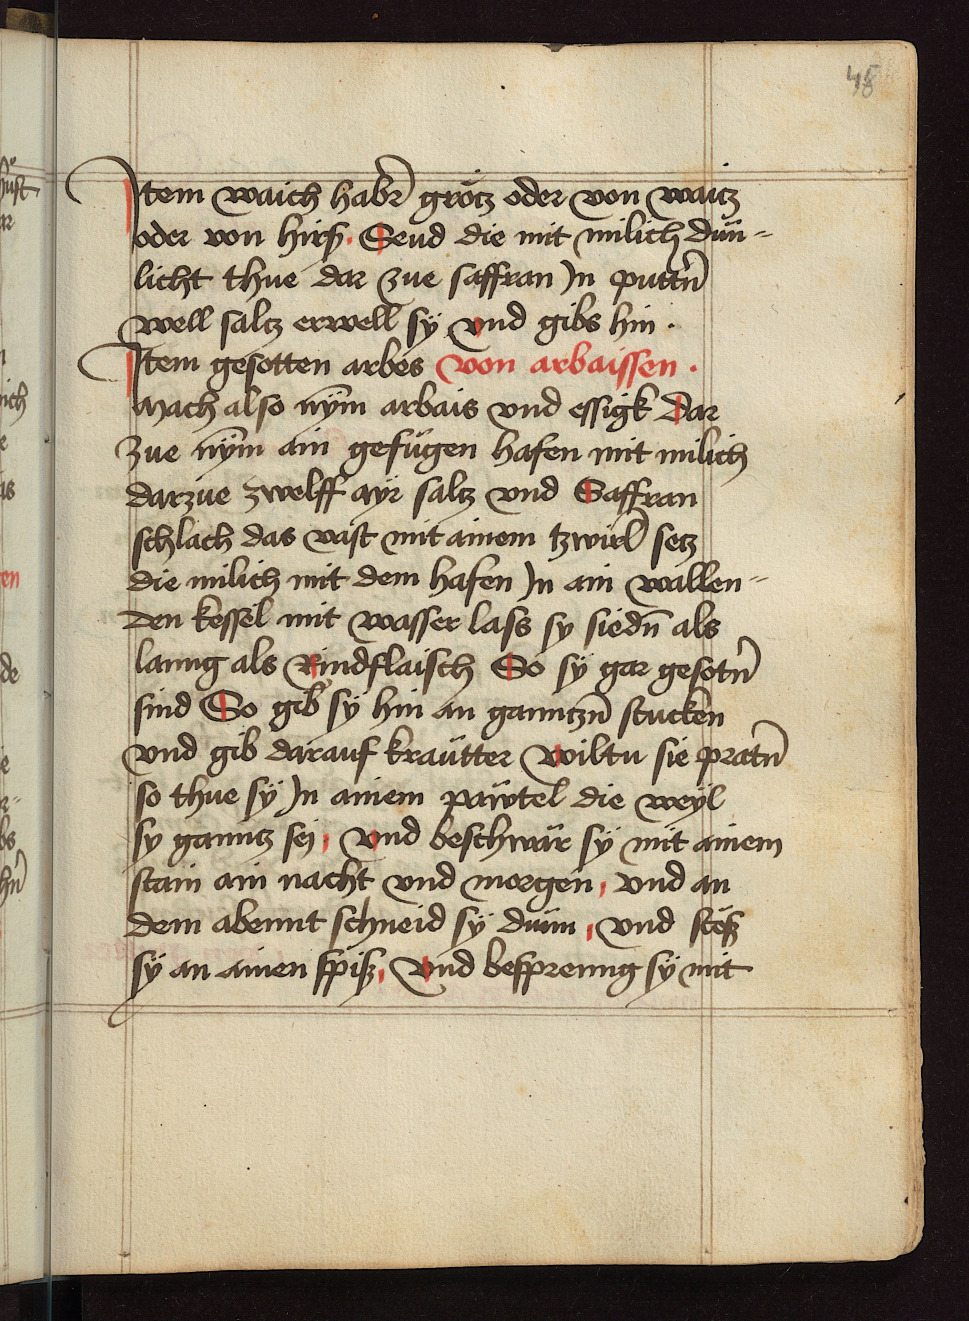 48
Item waich habr̄ grötz oder von waitz
oder von hirß. Seud die mit milich dün-
licht thue dar zue saffran In puttn̄
well saltz erwell sÿ vnd gibs hin .
Item gesotten arbes von arbaissen .
Mach also nÿm arbais vnd essigk dar
zue nÿm ain gefügen hafen mit milich
darzue zwelff ayr saltz vnd Saffran
schlach das vast mit ainem tzwirl setz
die milich mit dem hafen In ain wallen-
den kessel mit wasser lass sy siedn̄ als
lanng als Rindflaisch So sÿ gar gesotn̄
sind So gib sÿ hin an ganntzn̄ stucken
vnd gib darauf kraütter wiltu sie pratn̄
so thue sÿ In ainem päwtel die weÿl
sy ganntz sej, vnd beschwär sÿ mit ainem
stain ain nacht vnd morgen, vnd an
dem abennt schneid sÿ dünn, vnd stöß
sÿ an ainen spiß, vnd besprenng sÿ mit